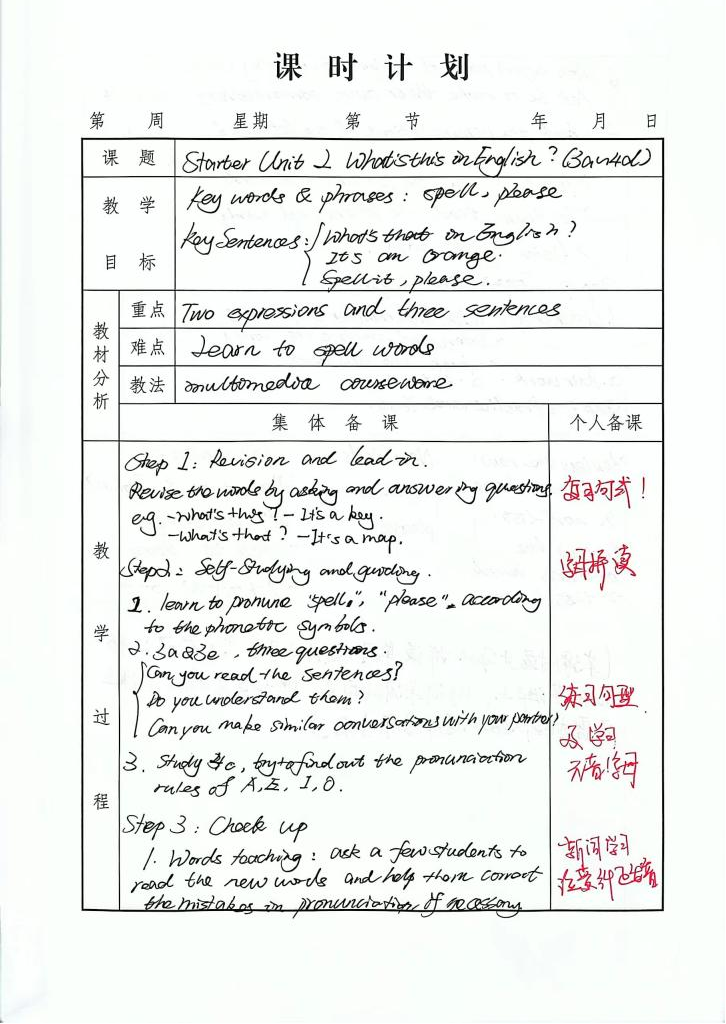 课时计划
第 周 星期 第 节 年 月 日
课题 Starter Unit 2 What's this in English? (3a~4d)
教学目标 key words & phrases: spell, please
key Sentences: What's that in English?
It's an orange.
Spell it, please.
教材分析 重点 Two expressions and three sentences
难点 Learn to spell words
教法 multimedia courseware
集体备课 个人备课
教学过程
Step 1: Revision and lead-in.
Revise the words by asking and answering questions. 复习句式!
eg. -What's this? - It's a key.
-What's that? - It's a map.
Step2: Self-Studying and guiding. 拼读
1. learn to pronune "spell", "please", according
to the phonetic symbols.
2. 3a&3e, three questions
Can you read the sentences?
Do you understand them? 练习句型
Can you make similar conversations with your partner?
及学习
3. Study 4c, try to find out the pronunciation 元音字母
rules of A, E, I, O.
Step 3: Check up
1. Words teaching: ask a few students to 新词学习
read the new words and help them correct 注意纠正发音
the mistakes in pronunciation if necessary